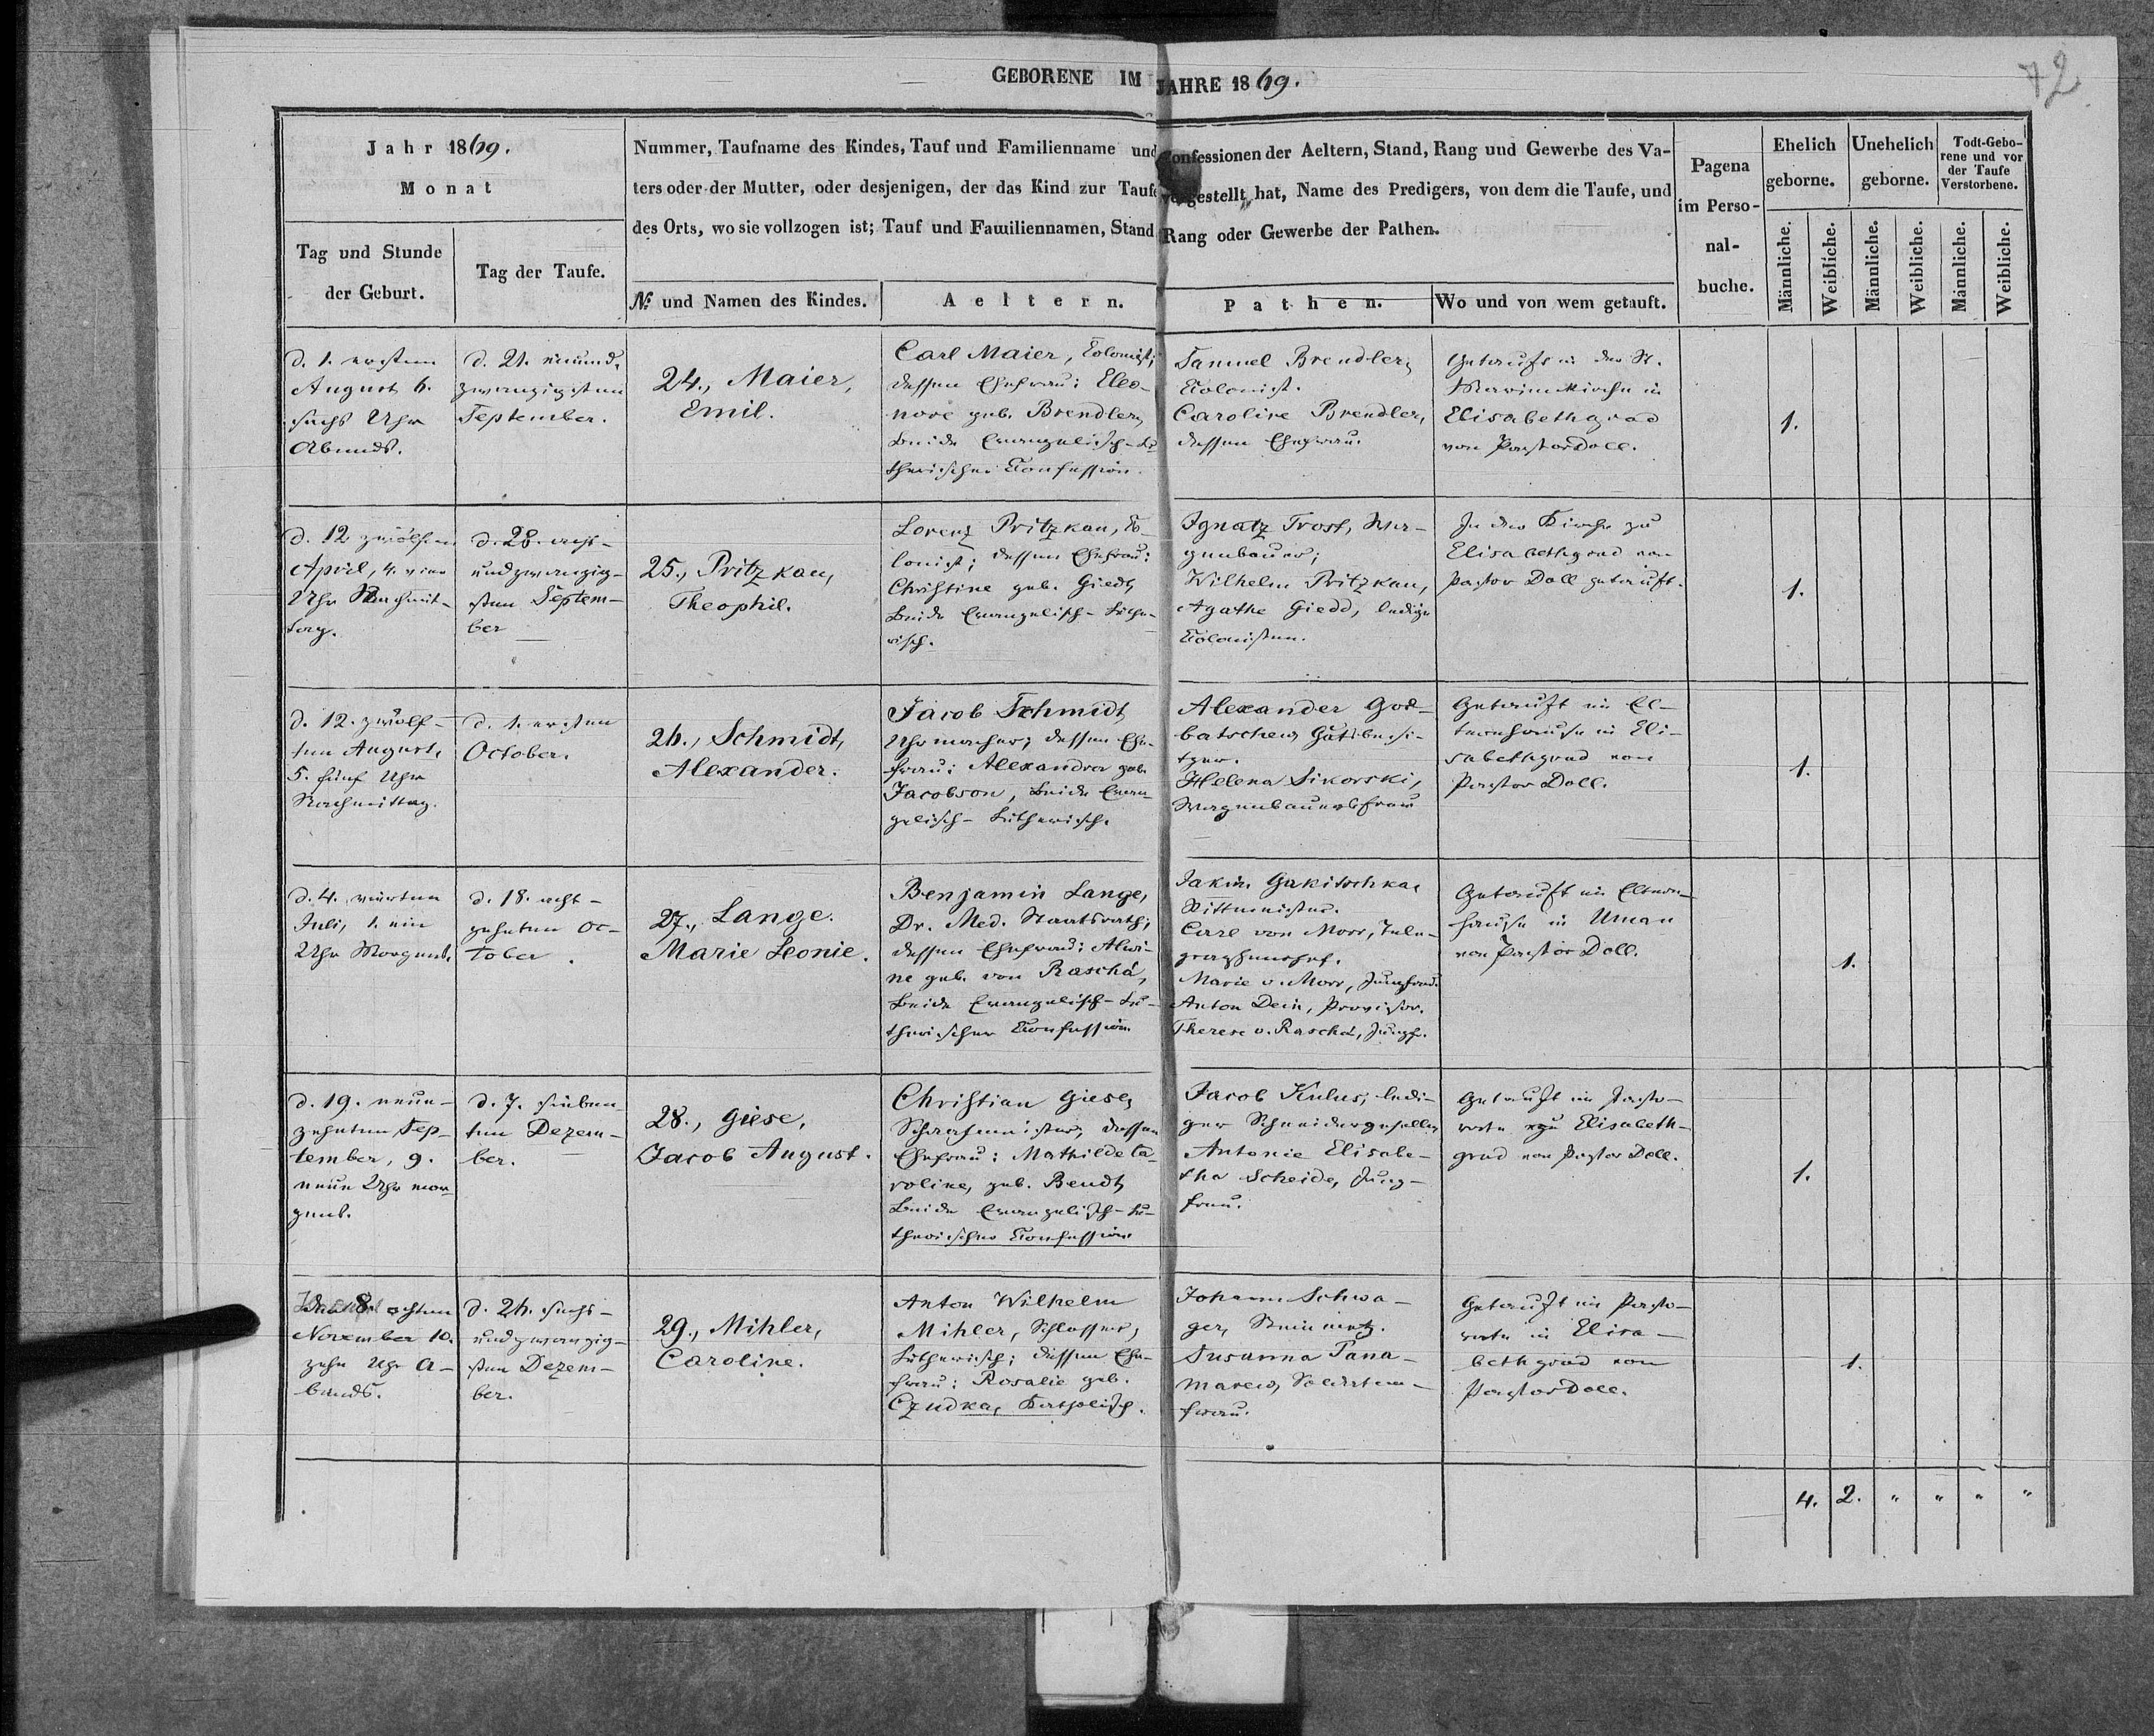 72
GEBORENE IM JAHRE 1869.
Jahr 1869.
Monat
Tag und Stunde
der Geburt.
Tag der Taufe.
Nummer, Taufname des Kindes, Tauf und Familienname und Confessionen der Aeltern, Stand, Rang und Gewerbe des Va-
ters oder der Mutter, oder desjenigen, der das Kind zur Taufe vorgestellt hat, Name des Predigers, von dem die Taufe, und
des Orts, wo sie vollzogen ist; Tauf und Familiennamen, Stand Rang oder Gewerbe der Pathen.
№ und Namen des Kindes.
Aeltern.
Pathen.
Wo und von wem getauft.
Pagena
im Perso-
nal-
buche.
Ehelich
geborne.
Unehelich
geborne.
Todt-Gebo-
rene und vor
der Taufe
Verstorbene.
Männliche.
Weibliche.
Männliche.
Weibliche.
Männliche.
Weibliche.
d. 1. ersten
August, 6.
sechs Uhr
Abends.
d. 21. einund-
zwanzigsten
September.
24., Maier,
Emil.
Carl Maier, Colonist;
dessen Ehefrau: Eleo-
nore geb. Brendler,
beide Evangelisch-Lu-
therischer Confession.
Samuel Brendler,
Colonist.
Caroline Brendler,
dessen Ehefrau.
Getauft in der St.
Elisabethgrad
von Pastor Doll.
1.
d. 12 zwölften
April, 4. vier
Uhr Nachmit-
tag.
d. 28. acht-
undzwanzig-
sten Septem-
ber
25., Pritzkau,
Theophil.
Lorenz Pritzkau, Co-
lonist; dessen Ehefrau:
Christine geb. Giedt,
beide Evangelisch-Luthe-
risch.
Ignatz Trost, Wa-
genbauer;
Wilhelm Pritzkau,
Agathe Giedd, ledige
Colonisten.
In der Kirche zu
Elisabethgrad von
Pastor Doll getauft.
1.
d. 12. zwölf-
ten August,
5. fünf Uhr
Nachmittag.
d. 1. ersten
October.
26., Schmidt,
Alexander.
Jacob Schmidt,
Uhrmacher; dessen Ehe-
frau: Alexandra geb.
Jacobson, beide Evan-
gelisch-Lutherisch.
Alexander Gor-
batschew, Gutsbesi-
tzer.
Helena Sikorski,
Wagenbauersfrau
Getauft im El-
ternhause in Eli-
sabethgrad von
Pastor Doll.
1.
d. 4. vierten
Juli, 1. ein
Uhr Morgens.
d. 18. acht-
zehnten Oc-
tober.
27., Lange.
Marie Leonie.
Benjamin Lange,
Dr. Med. Staatsrath;
dessen Ehefrau: Alwi-
ne geb. von Raschá,
beide Evangelisch-Lu-
therischer Confession
Jakim Gakitschka,
Rittmeister.
Carl von Morr, Tele-
graphenchef.
Marie v. Morr, Jungfrau.
Anton Dein, Provisor.
Therese v. Raschá, Jungf.
Getauft im Eltern-
hause in Uman
von Pastor Doll.
1.
d. 19. neun-
zehnten Sep-
tember, 9.
neun Uhr mor-
gens.
d. 7. sieben-
ten Dezem-
ber.
28., Giese,
Jacob August.
Christian Giese,
dessen
Ehefrau: Mathilde Ca-
roline, geb. Bendt,
beide Evangelisch-Lu-
therischer Confession
Jacob Kulus, ledi-
ger Schneidergeselle,
Antonie Elisabe-
tha Scheide, Jung-
frau.
Getauft im Pasto-
rate zu Elisabeth-
grad von Pastor Doll.
1.
Den 8. achten
November 10.
zehn Uhr A-
bends.
d. 26. sechs-
undzwanzig-
sten Dezem-
ber.
29., Mihler,
Caroline.
Anton Wilhelm
Mihler, Schlosser,
Lutherisch; dessen Ehe-
frau: Rosalie geb.
Czudka, Katholisch.
Johann Schwa-
ger, Steinmetz.
Susanna Pana-
marew, Soldaten-
frau.
Getauft im Pasto-
rate in Elisa-
bethgrad von
Pastor Doll.
1.
4. 2. " " " "